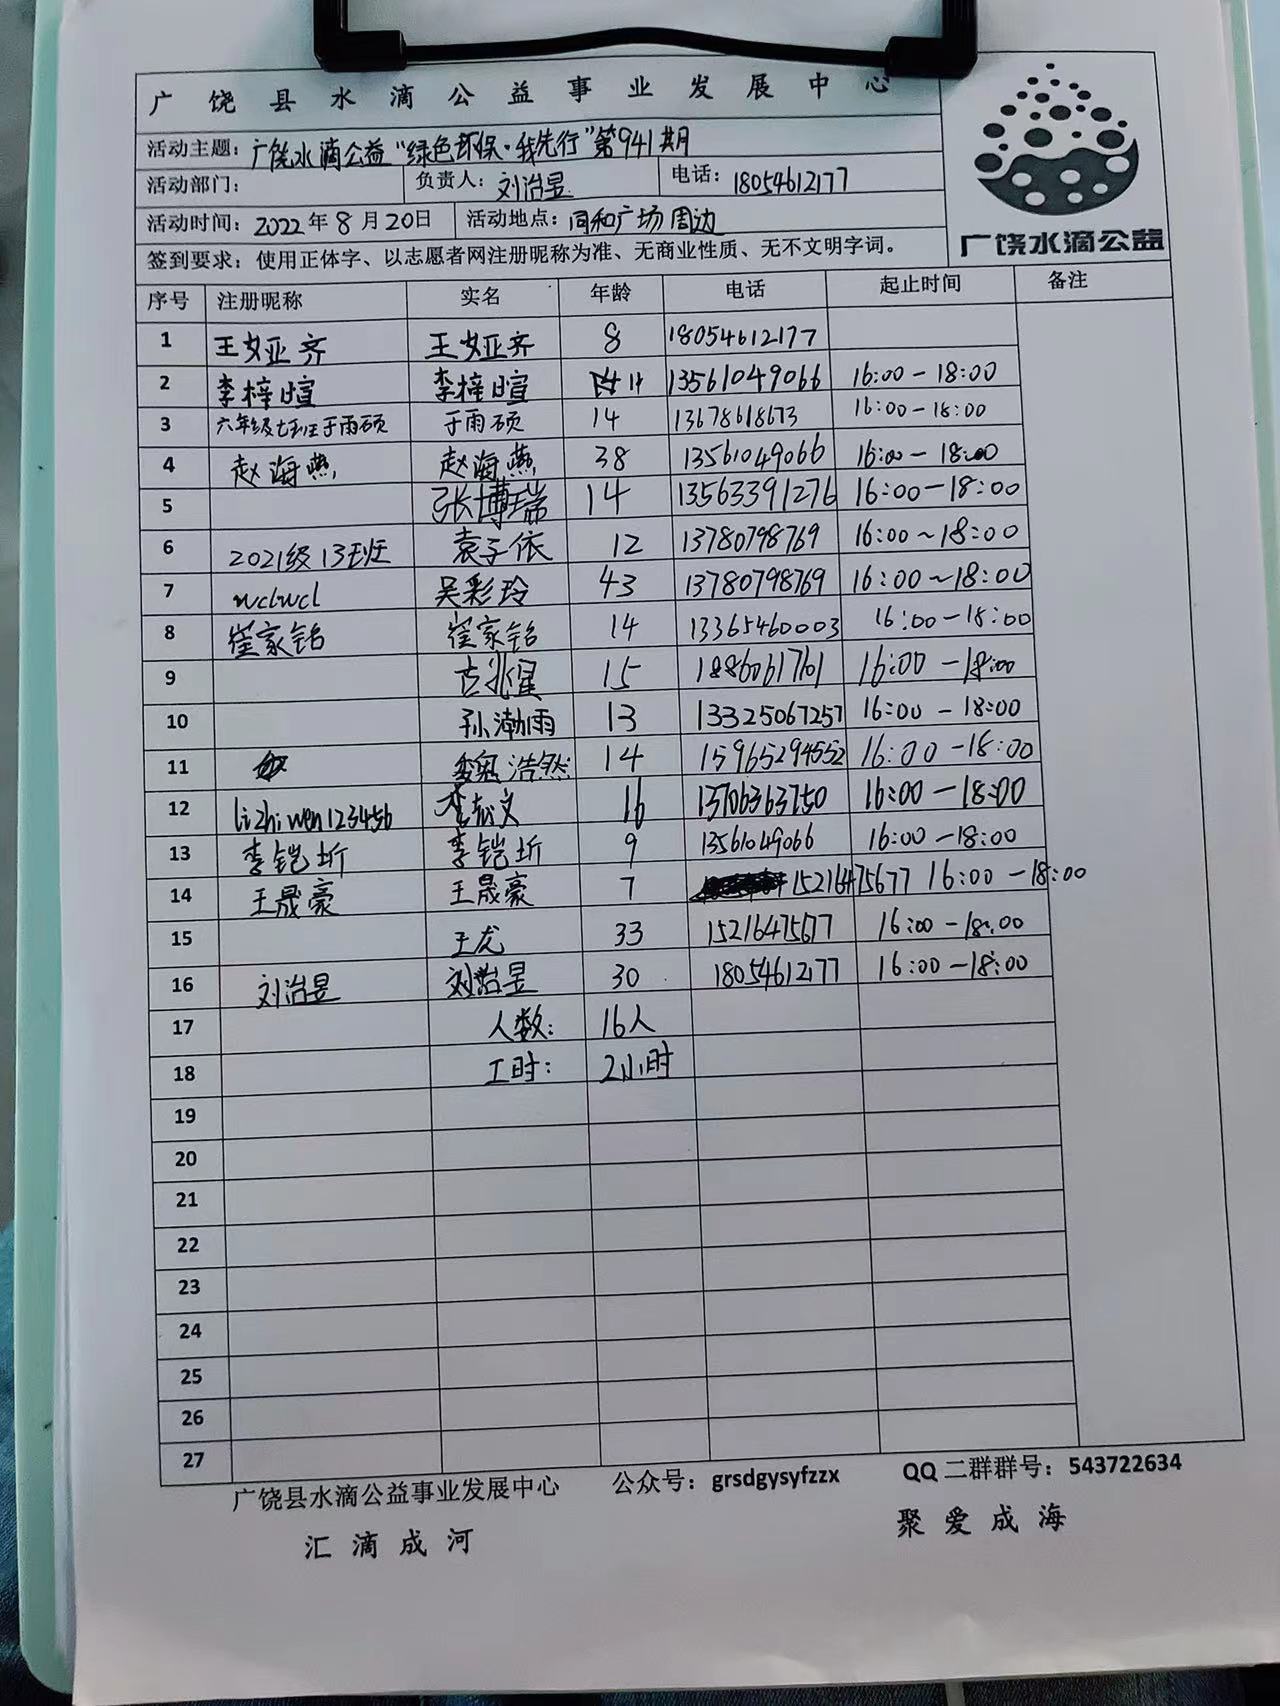 广饶县水滴公益事业发展中心
活动主题：广饶水滴公益“绿色环保·我先行”第941期
活动部门： 负责人：刘治昱 电话：18054612177
活动时间：2022年8月20日 活动地点：同和广场周边
签到要求：使用正体字、以志愿者网注册昵称为准、无商业性质、无不文明字词。
广饶水滴公益
序号 注册昵称 实名 年龄 电话 起止时间 备注
1 王娅齐 王娅齐 8 18054612177
2 李梓暄 李梓暄 11 13561049066 16:00-18:00
3 六年级七班王于雨硕 于雨硕 14 13678618673 16:00-18:00
4 赵海燕 赵海燕 38 13561049066 16:00-18:00
5 张博瑞 14 13563391276 16:00-18:00
6 2021级13班 袁子依 12 13780798769 16:00~18:00
7 wclwcl 吴彩玲 43 13780798769 16:00~18:00
8 崔家铭 崔家铭 14 13365460003 16:00-18:00
9 古兆星 15 18860617161 16:00-18:00
10 孙渤雨 13 13325067257 16:00-18:00
11 魏浩然 14 15965294552 16:00-18:00
12 lizhiwen123456 李志文 16 13706363750 16:00-18:00
13 李铠圻 李铠圻 9 13561049066 16:00-18:00
14 王晟豪 王晟豪 7 15216475677 16:00-18:00
15 王龙 33 15216475677 16:00-18:00
16 刘治昱 刘治昱 30 18054612177 16:00-18:00
17 人数： 16人
18 工时： 2小时
19
20
21
22
23
24
25
26
27
广饶县水滴公益事业发展中心 公众号：grsdgysyfzzx QQ二群群号：543722634
汇滴成河 聚爱成海